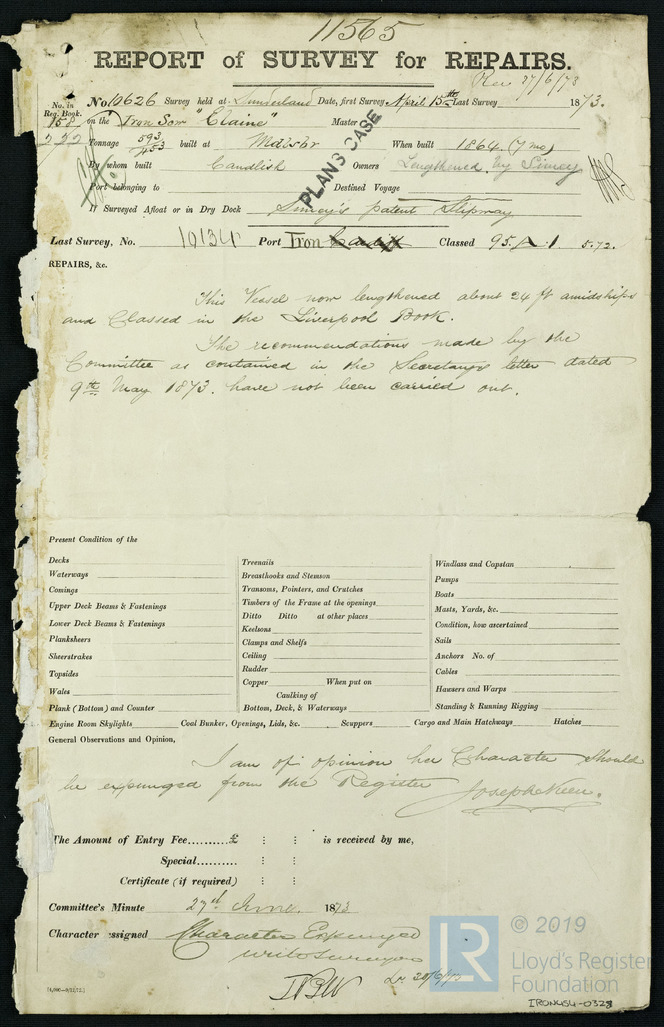 11565
REPORT of SURVEY for REPAIRS.
Rec 27/6/73
No. in Reg. Book. No. 10626 Survey held at Sunderland Date, first Survey April 15th Last Survey 1873.
158 on the Iron Scr "Elaine" Master
Tonnage 593/453 built at When built 1864. (7 mo)
By whom built Candlish Owners Lengthened by Simey
PLANS CASE
Port belonging to Destined Voyage
If Surveyed Afloat or in Dry Dock Simey's patent Slipway
Last Survey, No. 10134 Port Iron Cardiff Classed 95 A 1 5.72.
REPAIRS, &c.
This Vessel now lengthened about 24 ft amidships
and Classed in the Liverpool Book.
The recommendations made by the
Committee as contained in the Secretarys letter dated
9th May 1873. have not been carried out.
Present Condition of the
Decks
Waterways
Comings
Upper Deck Beams & Fastenings
Lower Deck Beams & Fastenings
Planksheers
Sheerstrakes
Topsides
Wales
Plank (Bottom) and Counter
Treenails
Breasthooks and Stemson
Transoms, Pointers, and Crutches
Timbers of the Frame at the openings
Ditto Ditto at other places
Keelsons
Clamps and Shelfs
Ceiling
Rudder
Copper When put on
Caulking of
Bottom, Deck, & Waterways
Windlass and Capstan
Pumps
Boats
Masts, Yards, &c.
Condition, how ascertained
Sails
Anchors No. of
Cables
Hawsers and Warps
Standing & Running Rigging
Engine Room Skylights Coal Bunker, Openings, Lids, &c. Scuppers Cargo and Main Hatchways Hatches
General Observations and Opinion,
I am of opinion her Character should
be expunged from the Register Joseph Keen.
The Amount of Entry Fee.......... £ : : is received by me,
Special.......... : :
Certificate (if required) : :
Committee's Minute 27th June. 1873
Character assigned Character Expunged
write Surveyors
Lr. 28/6/73
LR © 2019
Lloyd's Register
Foundation
IRON454-0328